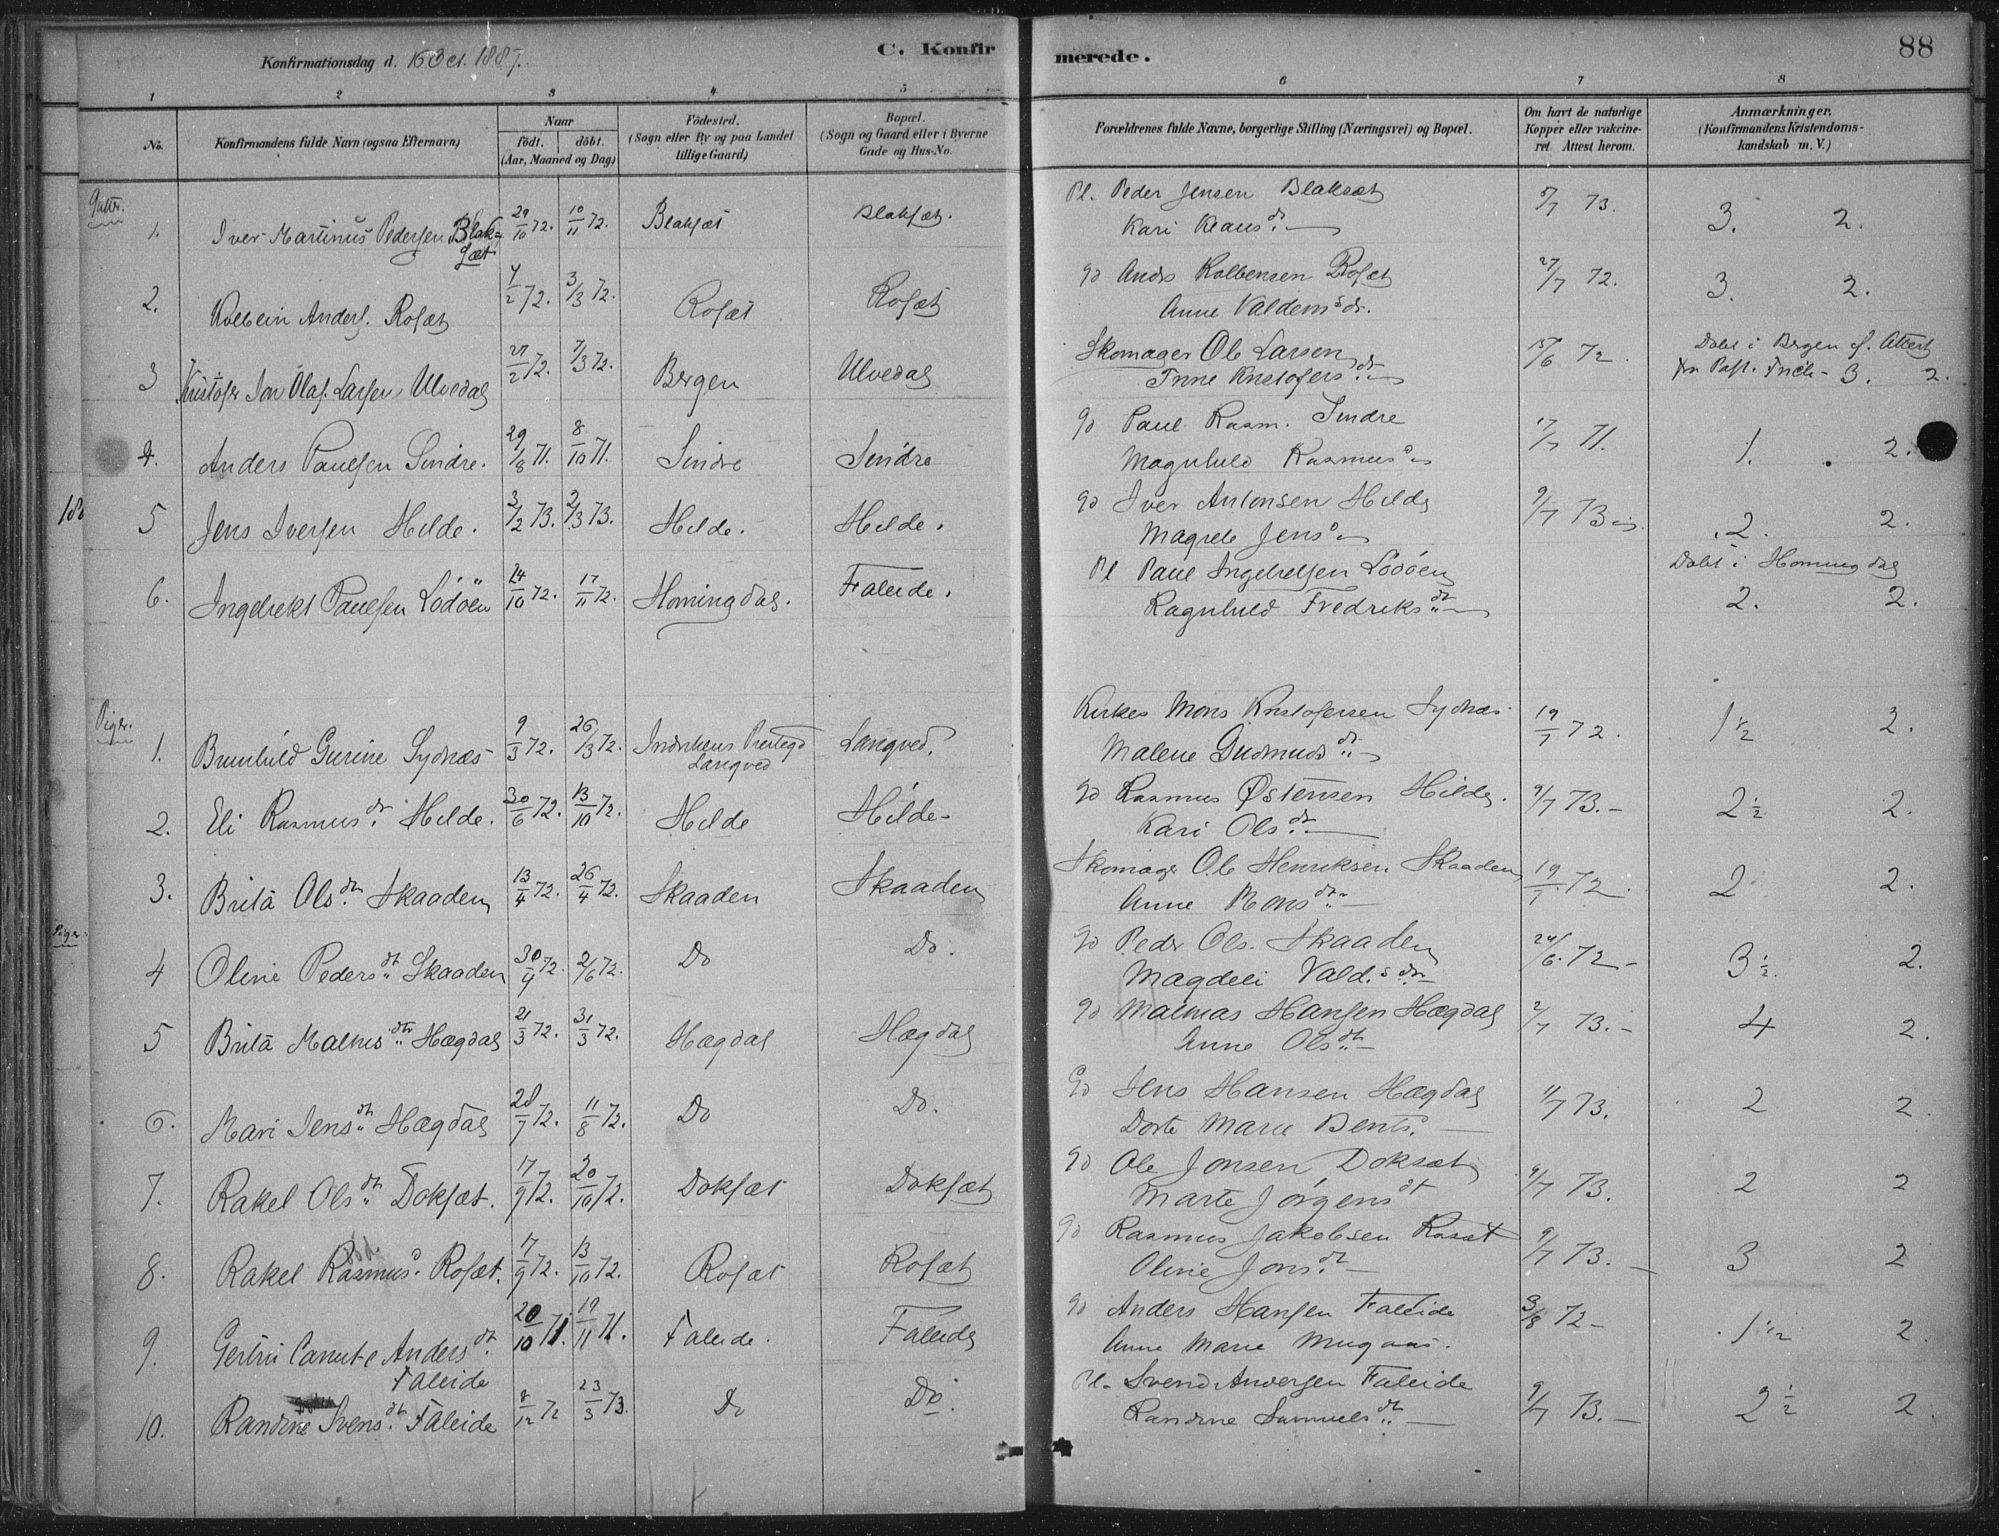 Konfirmationsdag d. 16 Oct. 1887.
C. Konfirmerede.
88
1 2 3 4 5 6 7 8
No.
Konfirmandens fulde Navn (ogsaa Efternavn)
Naar
födt. döbt.
(Aar, Maaned og Dag)
Födested.
(Sogn eller By og paa Landet tillige Gaard)
Bopæl.
(Sogn og Gaard eller i Byerne Gade og Hus-No.
Forældrenes fulde Navne, borgerlige Stilling (Næringsvei) og Bopæl.
Om havt de naturlige Kopper eller vakcineret. Attest herom.
Anmærkninger.
(Konfirmandens Kristendomskundskab m. V.)
Gutter.
1. Iver Martinus Pedersen Blaksæt 29/10 72. 10/11 72. Blaksæt Blaksæt. Pl. Peder Jensen Blaksæt 5/7 73. 3. 2.
Kari Klausdr.
2. Kolbein Anders. Rosæt 4/2 72. 3/3 72. Rosæt Rosæt Gd Anders Kolbensen Rosæt 27/7 72. 3. 2.
Anne Valdemsdr.
3 Kristofer Jon Olaf Larsen Ulvedal 27/2 72. 7/3 72. Bergen Ulvedal Skomager Ole Larsen 15/6 72. Døbt i Bergen cf. Attest
Trine Kristofersdr. fra Past. 3. 2.
4. Anders Paulsen Sindre. 29/8 71. 8/10 71. Sindre Sindre Gd Paul Rasm. Sindre 17/7 71. 1. 2.
Magnhild Rasmusd
5 Jens Iversen Hilde. 3/2 73. 2/3 73. Hilde. Hilde. Gd Iver Antonsen Hilde 9/7 73 2. 2.
Magrete Jensd
6. Ingebrekt Paulsen Lödöen 24/10 72. 17/11 72. Horningdal. Faleide. Pl Paul Ingebretsen Lödöen Døbt i Horningdal
Ragnhild Fredriksdt 2. 2.
Piger.
1. Brunhild Gurine Sydnæs 9/3 72. 26/3 72. Indvikens Præstegd Langved Langved. Kirkes. Mons Kristofersen Sydnæs 19/7 72. 1½ 2.
Malene Gudmundsdt
2. Eli Rasmusdr. Hilde. 30/6 72. 13/10 72. Hilde Hilde Gd Rasmus Östensen Hilde. 9/7 73. 2½ 2.
Kari Olsdr.
3. Brita Olsdtr Skaaden 13/4 72. 26/4 72. Skaaden Skaaden Skomager Ole Henriksen Skaaden 19/7 72. 2 2.
Anne Monsdtr
4 Oline Pedersdt Skaaden 30/4 72. 2/6 72. Do Do. Gd Peder Ols. Skaaden 24/6 72 3½. 2.
Magdeli Vald.sdtr
5 Brita Mathisdtr Hægdal 21/3 72. 31/3 72. Hægdal Hægdal Gd Mathias Hansen Hægdal 2/7 73. 4 2.
Anne Olsdt
6. Mari Jensdt Hægdal 28/7 72. 11/8 72. Do Do. Gd Jens Hansen Hægdal 4/7 73. 2 2.
Dorte Marie Bents.
7. Rakel Olsdt Doksæt. 17/9 72. 20/10 72. Doksæt Doksæt Gd Ole Jonsen Doksæt 9/7 73. 2 2
Marte Jörgensdt
8. Rakel Rasmusd Rosæt. 17/9 72. 13/10 72. Rosæt Rosæt Gd Rasmus Jakobsen Rosæt 9/7 73. 3 2
Oline Jonsdt
9. Gertrii Canute Andersdt Faleide 20/10 71. 19/11 71. Faleide. Faleide Gd Anders Hansen Faleide 3/8 72 1½ 2.
Anne Marie Mugaas.
10. Randine Svensdt Faleide 8/12 72 23/3 73. Do Do. Pl. Svend Andersen Faleide 9/7 73. 2½ 2.
Randine Samuelsdt
188
Piger.